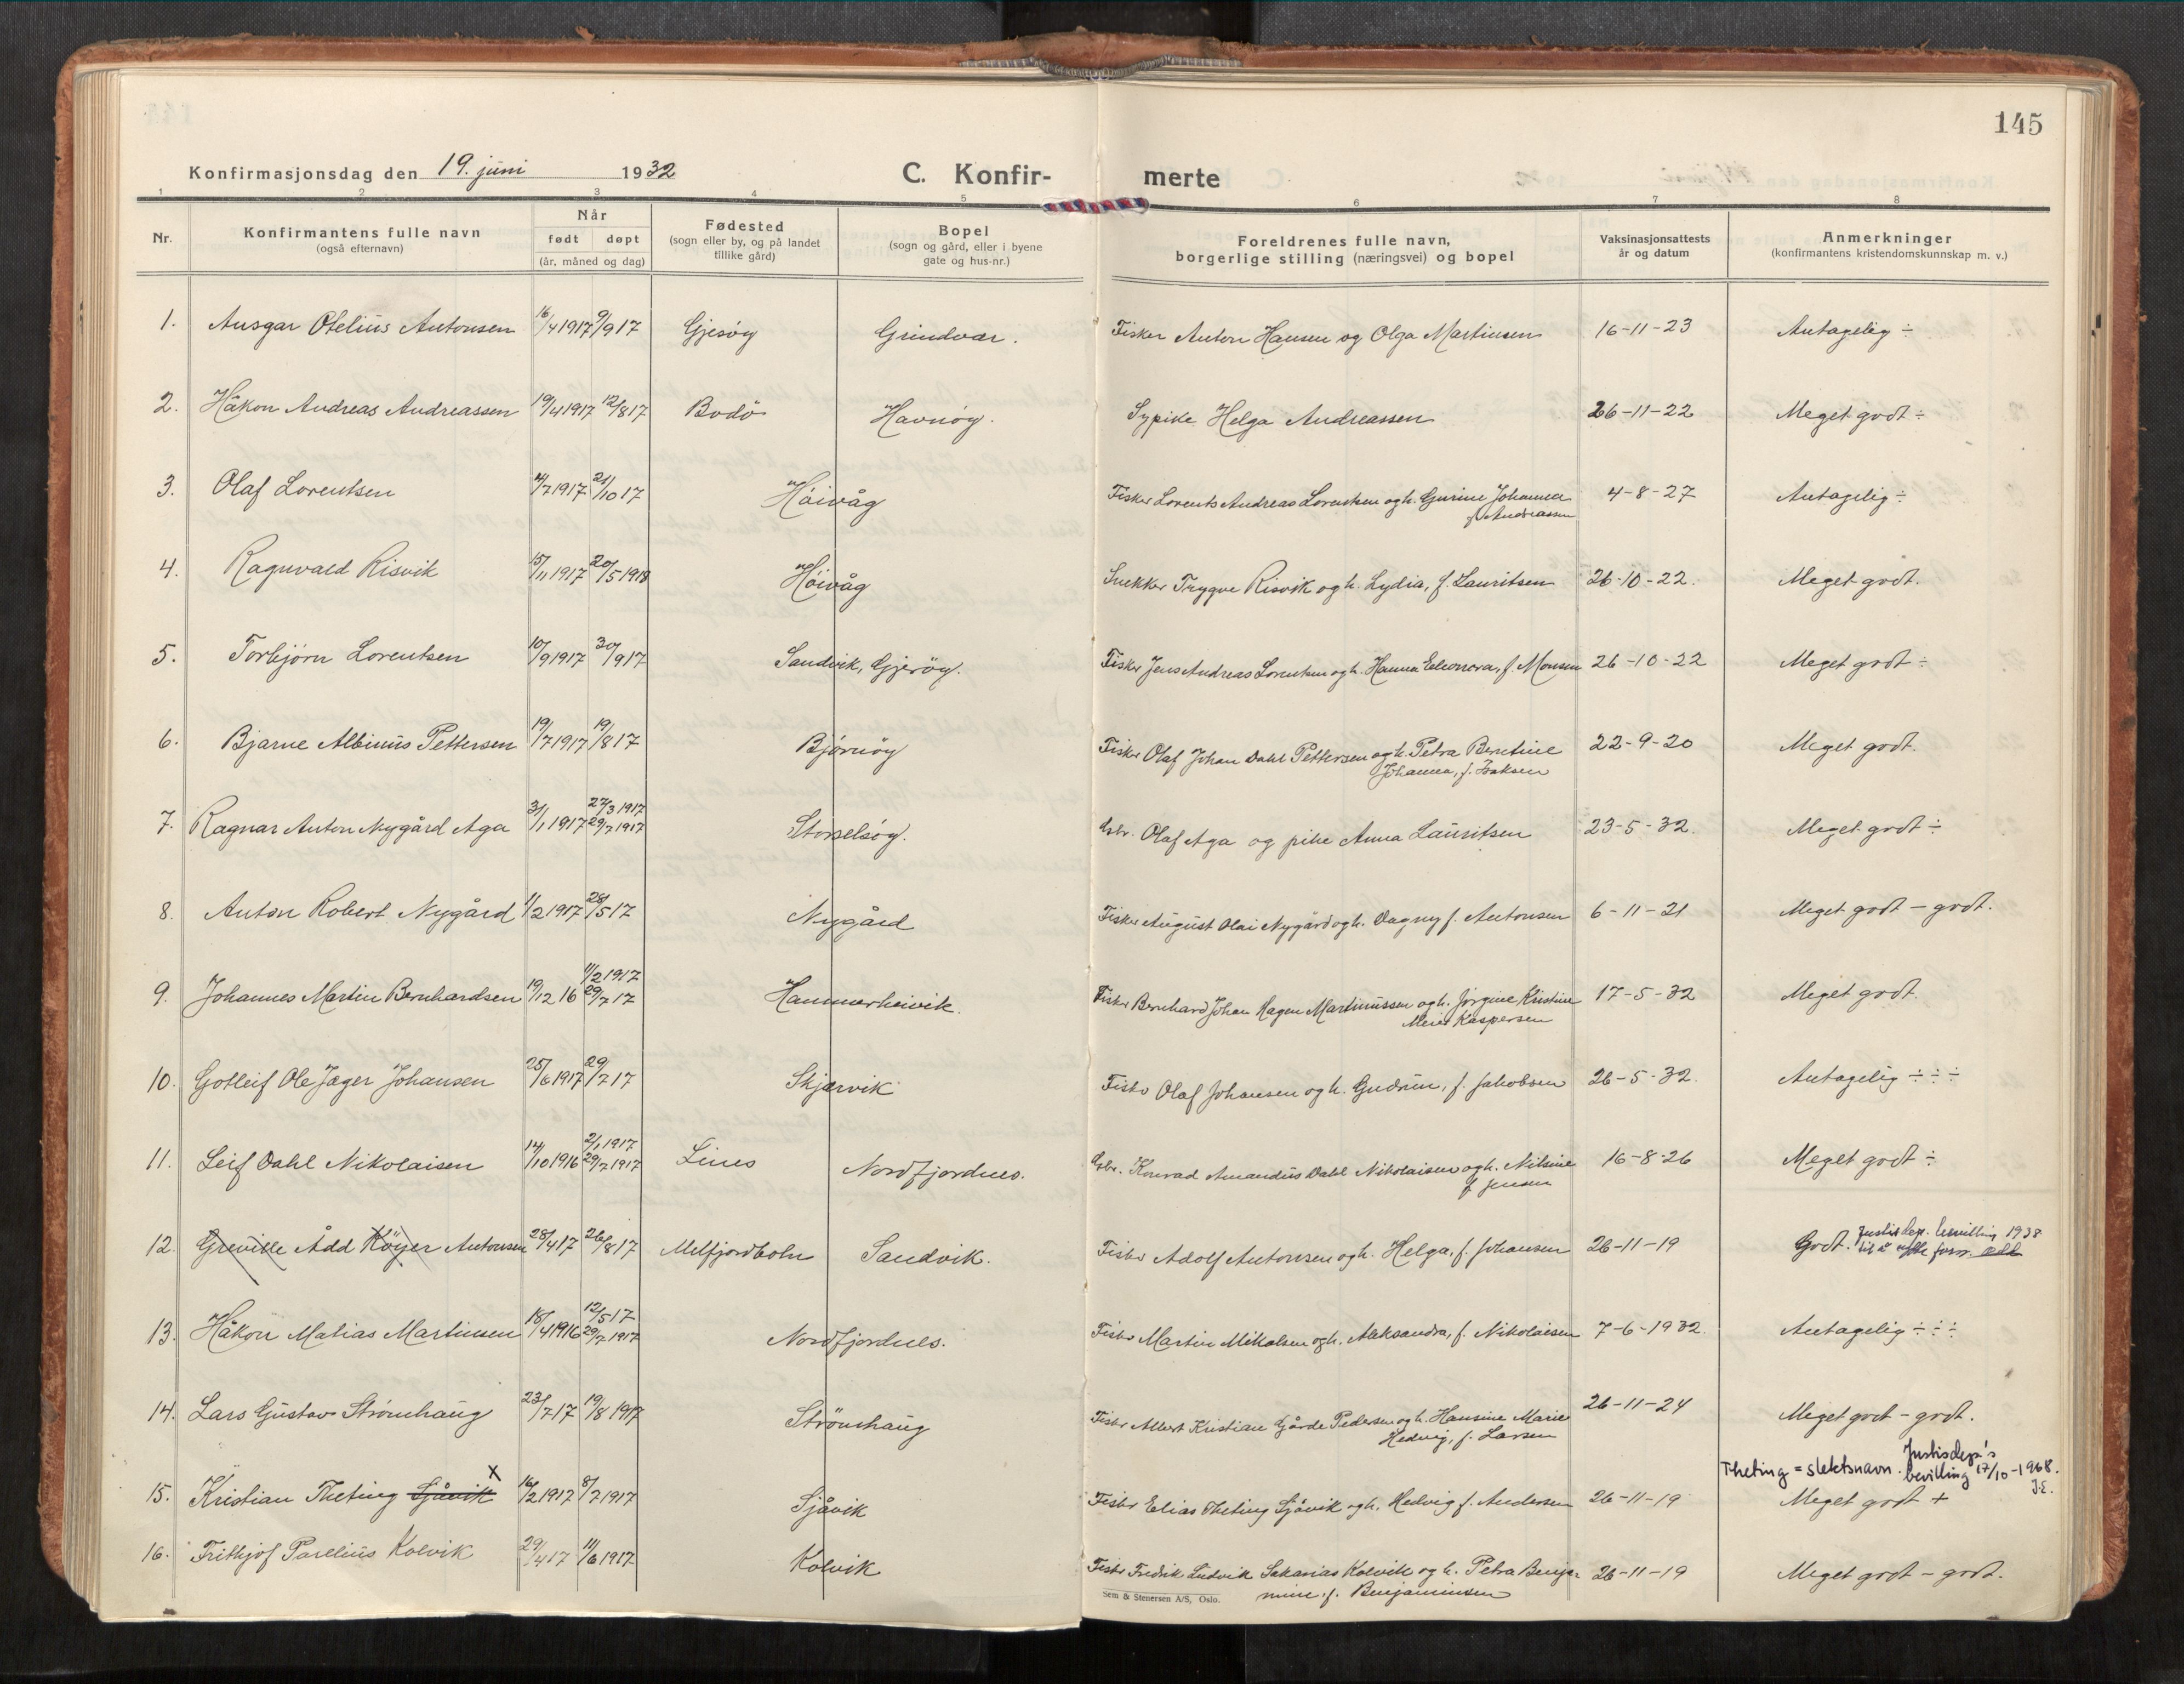 145
Konfirmasjonsdag den 19. juni 1932
C. Konfir- merte
1 2 3 4 5 6 7 8
Nr.
Konfirmantens fulle navn
(også efternavn)
Når
født døpt
(år, måned og dag)
Fødested
(sogn eller by, og på landet
tillike gård)
Bopel
(sogn og gård, eller i byene
gate og hus-nr.)
Foreldrenes fulle navn,
borgerlige stilling (næringsvei) og bopel
Vaksinasjonsattests
år og datum
Anmerkninger
(konfirmantens kristendomskunnskap m. v.)
1. Ansgar Otelius Antonsen 16/4 1917 9/9 17 Gjesøy Grindvar. Fisker Anton Hansen og Olga Martinsen 16-11-23 Antagelig ÷
2. Håkon Andreas Andreassen 19/4 1917 12/8 17 Bodö Havnöy. Sypike Helga Andreassen 26-11-22 Meget godt ÷
3. Olaf Lorentsen /7 1917 21/10 17 Höivåg Fisker Lorents Andreas Lorentsen og h. Gurine Johanna 4-8-27 Antagelig ÷
f. Andreassen
4. Ragnvald Risvik 15/11 1917 20/5 1918 Höivåg Snekker Trygve Risvik og h. Lydia, f. Lauritsen 26-10-22. Meget godt.
5. Torbjörn Lorentsen 10/9 1917 30/9 17 Sandvik, Gjeröy. Fisker Jens Andreas Lorentsen og h. Hanna Eleonora, f. Monsen 26-10-22 Meget godt ÷
6. Bjarne Albinus Pettersen 19/7 1917 19/8 17 Bjørnöy Fisker Olaf Johan Dahl Pettersen og h. Petra Berntine 22-9-20 Meget godt.
Johanna, f. Isaksen
27/3 1917
7. Ragnar Anton Nygård Aga 31/1 1917 29/7 1917 Storselsöy. Gbr. Olaf Aga og pike Anna Lauritsen 23-5-32. Meget godt ÷
8. Anton Robert Nygård 1/2 1917 28/5 17 Nygård Fisker August Olai Nygård og h. Dagny f. Antonsen 6-11-21 Meget godt - godt.
11/2 1917
9. Johannes Martin Bernhardsen 19/12 16 29/7 17 Hammerheivik. Fisker Bernhard Johan Hagen Martinussen og h. Jørgine Kristine 17-5-32 Meget godt.
Meier Kaspersen
10. Gotleif Ole Jæger Johansen 25/6 1917 29/7 17 Skjærvik Fisker Olaf Johansen og h. Gudrun, f. Jakobsen 26-5-32. Antagelig ÷ ÷ ÷
2/1 1917
11. Leif Dahl Nikolaisen 14/10 1916 29/7 1917 Lines Nordfjordnes. Gbr. Konrad Amandus Dahl Nikolaisen og h. Nilsine 16-8-26 Meget godt ÷
f. Jensen
12. Greville Ådd Köyer Antonsen 28/4 17 26/8 17 Melfjordbotn Sandvik. Fisker Adolf Antonsen og h. Helga, f. Johansen 26-11-19 Godt. Justisdep. bevilling 1938
til å sløife forn.
12/5 17
13. Håkon Matias Martinsen 18/4 1916 29/7 1917 Nordfjordnes. Fisker Martin Mikalsen og h. Aleksandra, f. Nikolaisen 7-6-1932. Antagelig ÷ ÷ ÷
14. Lars Gustav Strömhaug 23/7 17 19/8 1917 Strömhaug Fisker Albert Kristian Gårde Pedersen og h. Hansine Marie 26-11-24 Meget godt - godt.
Hedvig, f. Larsen
Theting = slektsnavn. Justisdep's
bevilling 17/10-1968.
J.E.
15. Kristian Theting Sjåvik x 16/2 1917 8/7 1917 Sjåvik Fisker Elias Theting Sjåvik og h. Hedvig f. Andersen 26-11-19 Meget godt +
16. Frithjof Parelius Kolvik 29/4 17 11/6 1917 Kolvik Fisker Fredrik Ludvik Sakarias Kolvik og h. Petra Benja- 26-11-19 Meget godt - godt.
mine f. Benjaminsen
Sem & Stenersen A/S, Oslo.